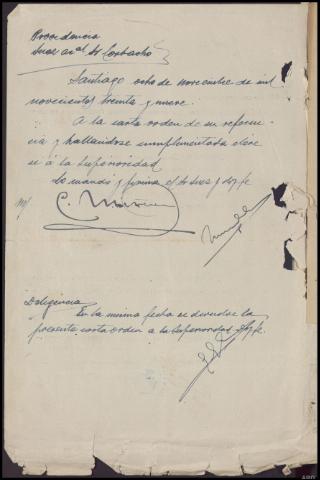 Providencia
Juez acal Sr Corbacho
Santiago ocho de noviembre de mil
novecientos treinta y nueve.
A la carta orden de su referen-
cia y hallandose cumplimentada eleve
se á la Superioridad
Lo mandó y firma el Sr Juez y doy fe
Diligencia
En la misma fecha se devuelve la
presente carta orden a la Superioridad doy fe.